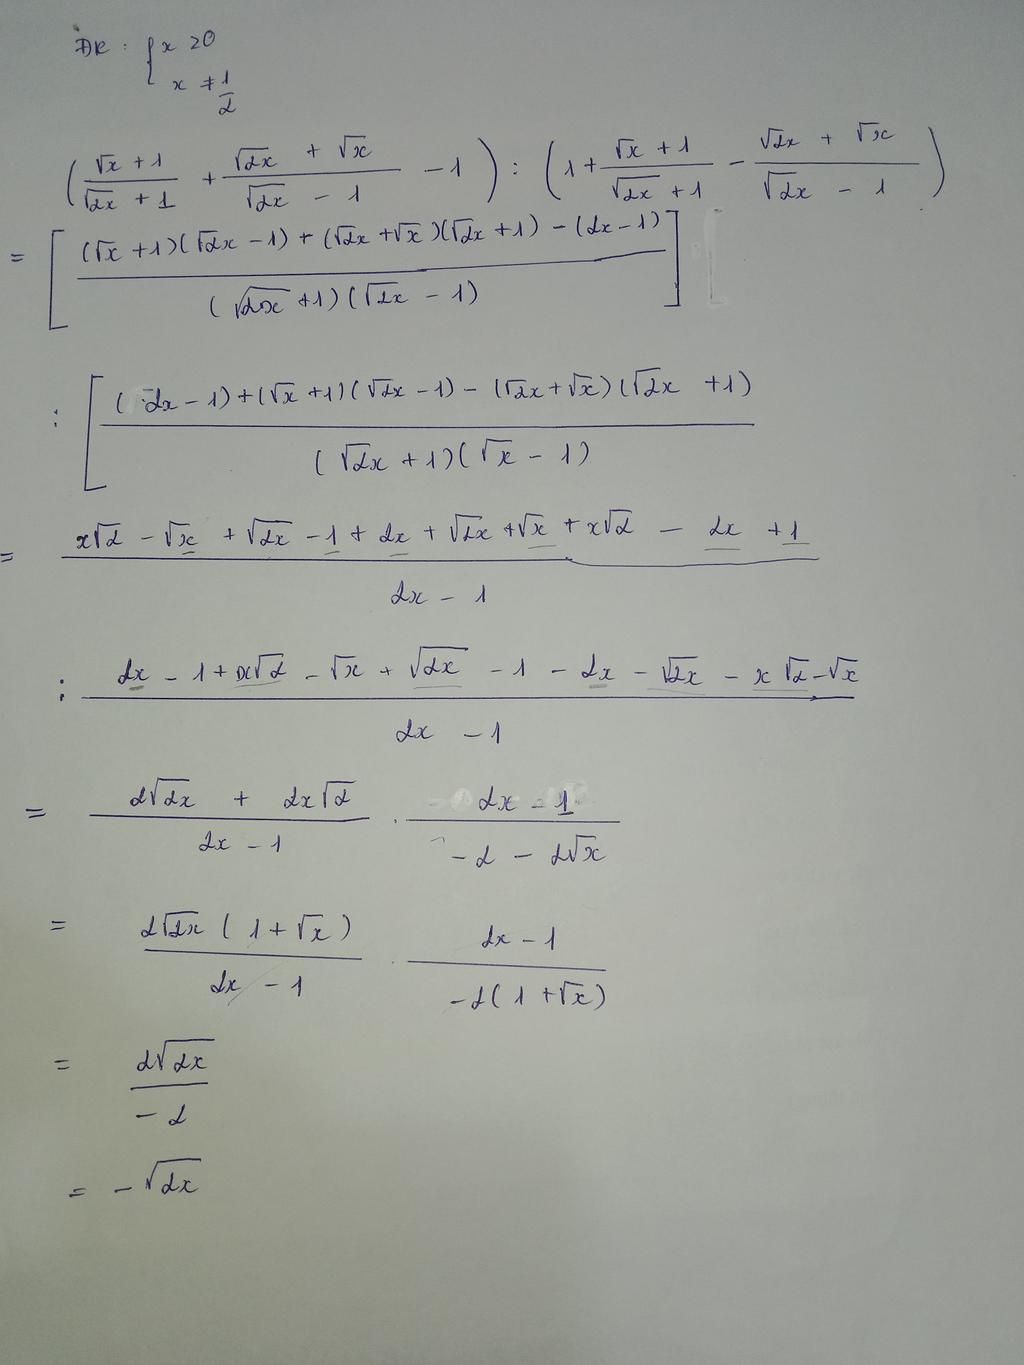 ĐK : { x ≥ 0
x ≠ 1/2
( (√x + 1)/(√2x + 1) + (√2x + √x)/(√2x - 1) - 1 ) : ( 1 + (√x + 1)/(√2x + 1) - (√2x + √x)/(√2x - 1) )
= [ ((√x + 1)(√2x - 1) + (√2x + √x)(√2x + 1) - (2x - 1))/((√2x + 1)(√2x - 1)) ]
: [ ((2x - 1) + (√x + 1)(√2x - 1) - (√2x + √x)(√2x + 1))/((√2x + 1)(√x - 1))
= (x√2 - √x + √2x - 1 + 2x + √2x + √x + x√2 - 2x + 1)/(2x - 1)
: (2x - 1 + x√2 - √x + √2x - 1 - 2x - √2x - x√2 - √x)/(2x - 1)
= (2√2x + 2x√2)/(2x - 1) . (2x - 1)/(-2 - 2√x)
= (2√2x (1 + √x))/(2x - 1) . (2x - 1)/(-2(1 + √x))
= (2√2x)/(-2)
= -√2x